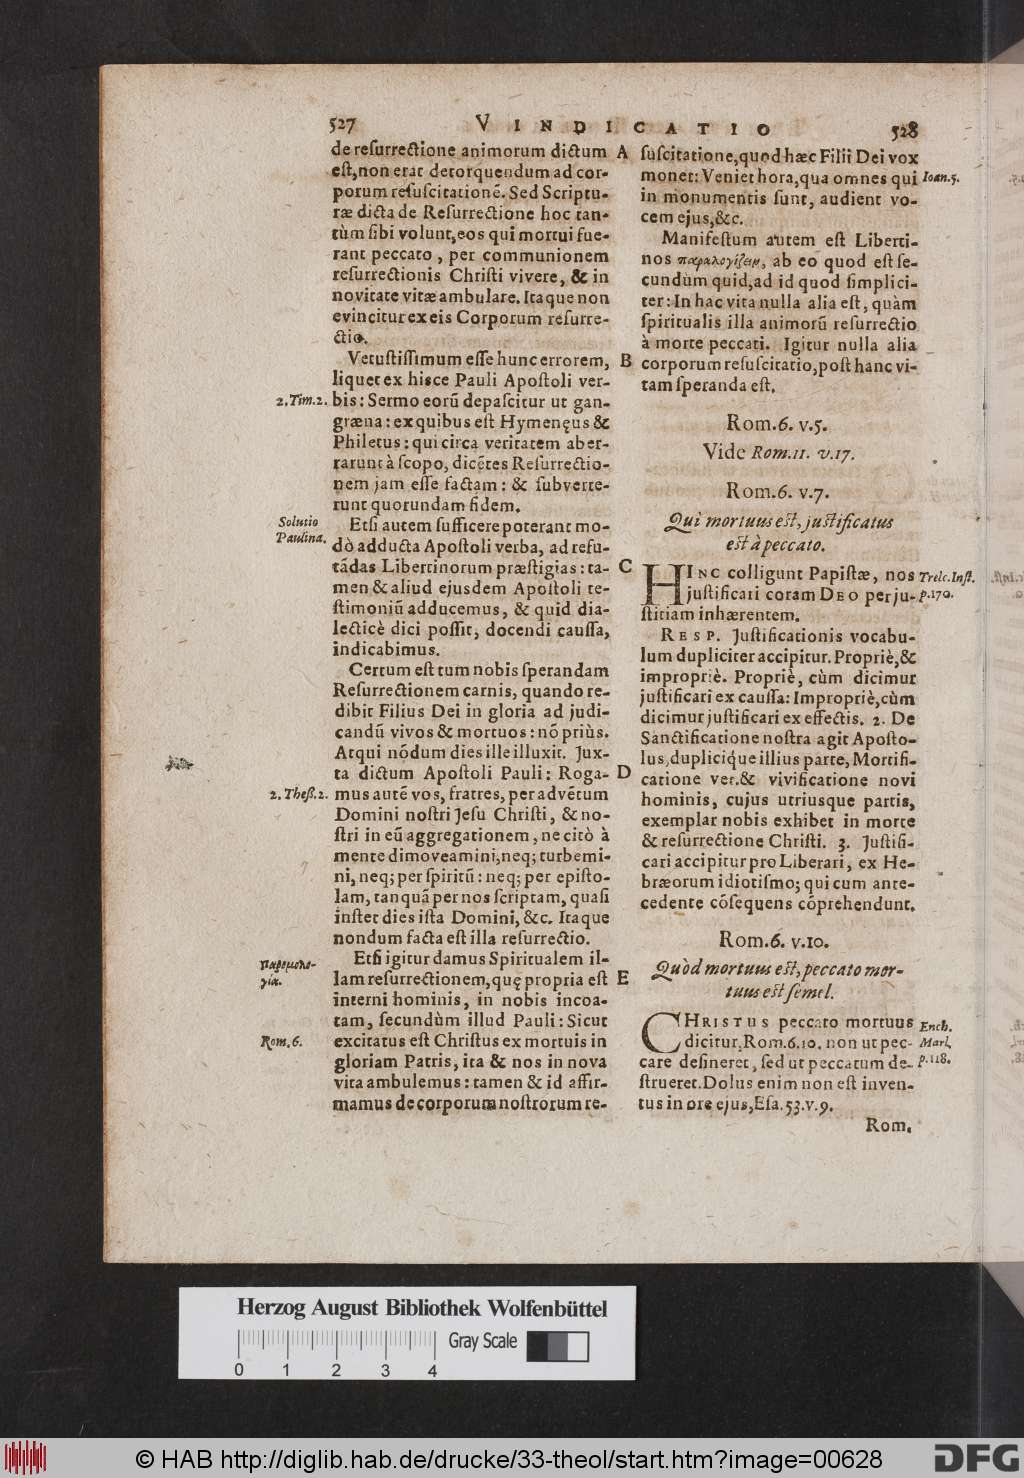 527
VINDICATIO
528
de resurrectione animorum dictum
est, non erat detorquendum ad cor-
porum resuscitationē. Sed Scriptu-
ræ dicta de Resurrectione hoc tan-
tùm sibi volunt, eos qui mortui fue-
rant peccato, per communionem
resurrectionis Christi vivere, & in
novitate vitæ ambulare. Itaque non
evincitur ex eis Corporum resurre-
ctio.
Vetustissimum esse hunc errorem,
liquet ex hisce Pauli Apostoli ver-
2. Tim. 2.
bis: Sermo eorū depascitur ut gan-
græna: ex quibus est Hymenęus &
Philetus: qui circa veritatem aber-
rarunt à scopo, dicētes Resurrectio-
nem jam esse factam: & subverte-
runt quorundam fidem.
Solutio
Paulina.
Etsi autem sufficere poterant mo-
dò adducta Apostoli verba, ad refu-
tādas Libertinorum præstigias: ta-
men & aliud ejusdem Apostoli te-
stimoniū adducemus, & quid dia-
lecticè dici possit, docendi caussa,
indicabimus.
Certum est tum nobis sperandam
Resurrectionem carnis, quando re-
dibit Filius Dei in gloria ad judi-
candū vivos & mortuos: nō priùs.
Atqui nōdum dies ille illuxit. Jux-
ta dictum Apostoli Pauli: Roga-
2. Theß. 2.
mus autē vos, fratres, per advētum
Domini nostri Jesu Christi, & no-
stri in eū aggregationem, ne citò à
mente dimoveamini, neq; turbemi-
ni, neq; per spiritū: neq; per episto-
lam, tanquā per nos scriptam, quasi
instet dies ista Domini, &c. Itaque
nondum facta est illa resurrectio.
Παρομολο-
γία.
Etsi igitur damus Spiritualem il-
lam resurrectionem, quę propria est
interni hominis, in nobis incoa-
tam, secundùm illud Pauli: Sicut
Rom. 6.
excitatus est Christus ex mortuis in
gloriam Patris, ita & nos in nova
vita ambulemus: tamen & id affir-
mamus de corporum nostrorum re-
A
B
C
D
E
suscitatione, quod hæc Filii Dei vox
monet: Veniet hora, qua omnes qui
Ioan. 5.
in monumentis sunt, audient vo-
cem ejus, &c.
Manifestum autem est Liberti-
nos παραλογίζειν, ab eo quod est se-
cundùm quid, ad id quod simplici-
ter: In hac vita nulla alia est, quàm
spiritualis illa animorū resurrectio
à morte peccati. Igitur nulla alia
corporum resuscitatio, post hanc vi-
tam speranda est.
Rom. 6. v. 5.
Vide Rom. 11. v. 17.
Rom. 6. v. 7.
Qui mortuus est, justificatus
est à peccato.
HINC colligunt Papistæ, nos
Trelc. Inst.
p. 170.
justificari coram DEO per ju-
stitiam inhærentem.
RESP. Justificationis vocabu-
lum dupliciter accipitur. Propriè, &
impropriè. Propriè, cùm dicimur
justificari ex caussa: Impropriè, cùm
dicimur justificari ex effectis. 2. De
Sanctificatione nostra agit Aposto-
lus, duplicique illius parte, Mortifi-
catione vet. & vivificatione novi
hominis, cujus utriusque partis,
exemplar nobis exhibet in morte
& resurrectione Christi. 3. Justifi-
cari accipitur pro Liberari, ex He-
bræorum idiotismo; qui cum ante-
cedente cōsequens cōprehendunt.
Rom. 6. v. 10.
Quòd mortuus est, peccato mor-
tuus est semel.
CHRISTUS peccato mortuus
Ench.
Marl.
p. 118.
dicitur, Rom. 6. 10. non ut pec-
care desineret, sed ut peccatum de-
strueret. Dolus enim non est inven-
tus in ore ejus, Esa. 53. v. 9.
Rom.
Herzog August Bibliothek Wolfenbüttel
Gray Scale
0 1 2 3 4
© HAB http://diglib.hab.de/drucke/33-theol/start.htm?image=00628
DFG